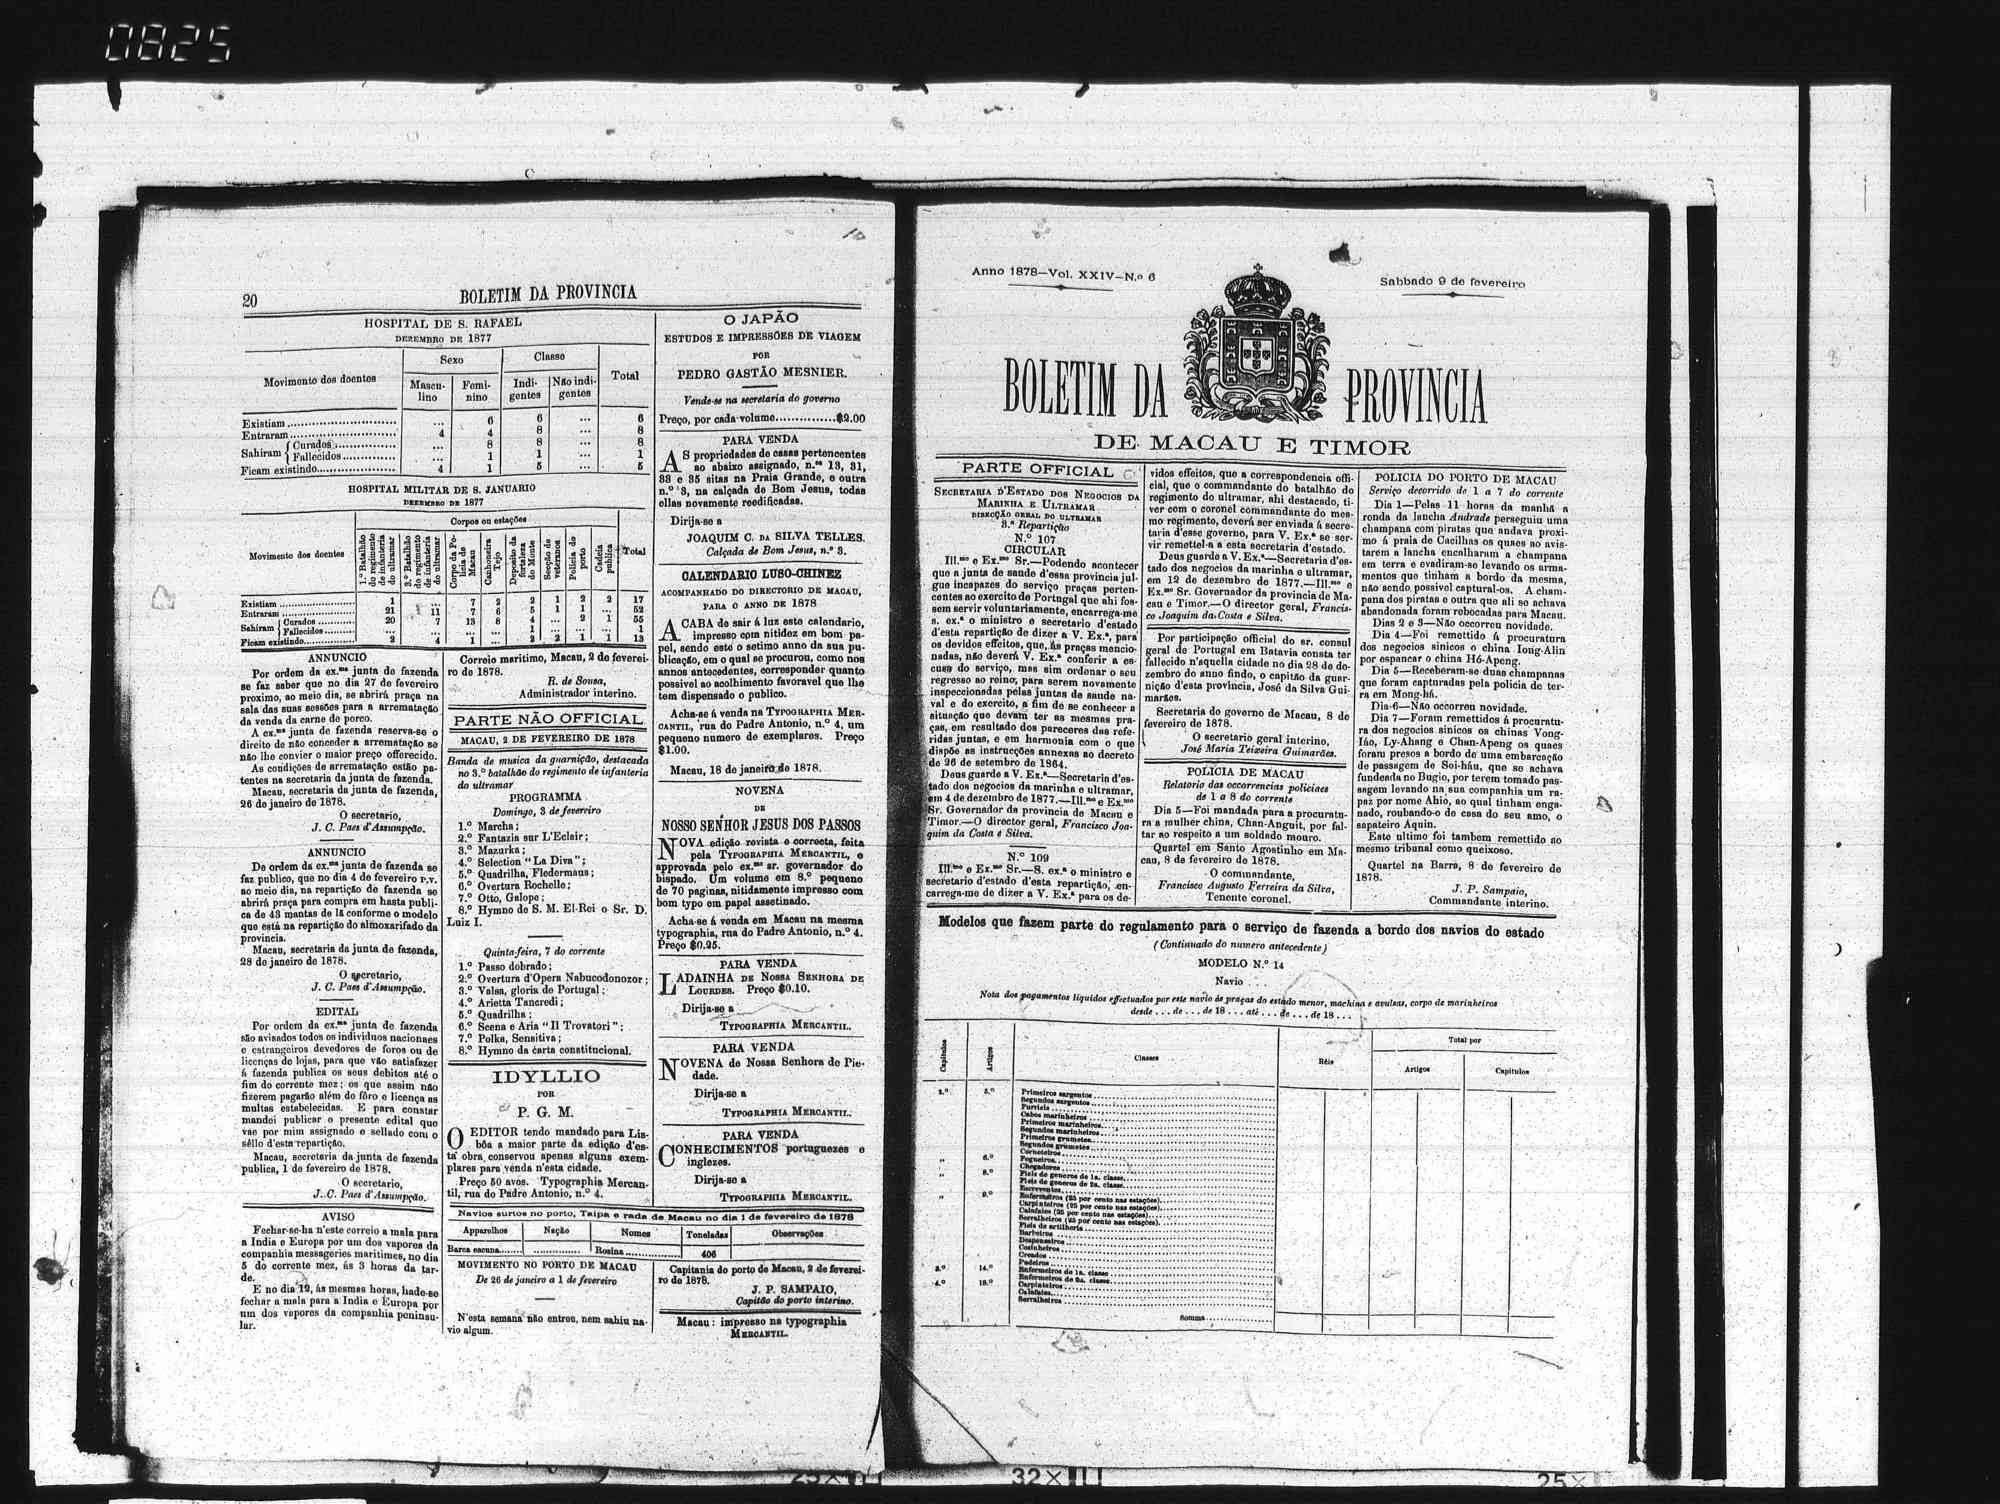 0825
20
BOLETIM DA PROVINCIA
HOSPITAL DE S. RAFAEL
DEZEMBRO DE 1877
Movimento dos doentes
Sexo
Classe
Total
Mascu-
lino
Femi-
nino
Indi-
gentes
Não indi-
gentes
Existiam ... 6 6 ... 6
Entraram 4 4 8 ... 8
Sahiram { Curados ... 8 8 ... 8
Fallecidos ... 1 1 ... 1
Ficam existindo 4 1 5 ... 5
HOSPITAL MILITAR DE S. JANUARIO
DEZEMBRO DE 1877
Movimento dos doentes
Corpos ou estações
1.º Batalhão
do regimento
de infanteria
do ultramar
3.º Batalhão
do regimento
de infanteria
do ultramar
Corpo da Po-
licia de
Macau
Canhoneira
Tejo
Deposito da
fortaleza
do Monte
Secção de
veteranos
Policia do
porto
Cadeia
publica
Total
Existiam 1 ... 7 2 2 1 2 2 17
Entraram 21 11 7 6 5 1 1 ... 52
Sahiram { Curados 20 7 13 8 4 ... 2 1 55
Fallecidos ... ... ... ... 1 ... ... ... 1
Ficam existindo 2 4 1 ... 2 2 1 1 13
ANNUNCIO
Por ordem da ex.ma junta de fazenda
se faz saber que no dia 27 de fevereiro
proximo, ao meio dia, se abrirá praça na
sala das suas sessões para a arrematação
da venda da carne de porco.
A ex.ma junta de fazenda reserva-se o
direito de não conceder a arrematação se
não lhe convier o maior preço offerecido.
As condições de arrematação estão pa-
tentes na secretaria da junta de fazenda.
Macau, secretaria da junta de fazenda,
26 de janeiro de 1878.
O secretario,
J. C. Paes d'Assumpção.
ANNUNCIO
De ordem da ex.ma junta de fazenda se
faz publico, que no dia 4 de fevereiro P.V.
ao meio dia, na repartição de fazenda se
abrirá praça para compra em hasta publi-
ca de 43 mantas de lã conforme o modelo
que está na repartição do almoxarifado da
provincia.
Macau, secretaria da junta de fazenda,
28 de janeiro de 1878.
O secretario,
J. C. Paes d'Assumpção.
EDITAL
Por ordem da ex.ma junta de fazenda
são avisados todos os individuos nacionaes
e estrangeiros devedores de foros ou de
licenças de lojas, para que vão satisfazer
á fazenda publica os seus debitos até o
fim do corrente mez; os que assim não
fizerem pagarão além do fôro e licença as
multas estabelecidas. E para constar
mandei publicar o presente edital que
vae por mim assignado e sellado com o
sêllo d'esta repartição.
Macau, secretaria da junta de fazenda
publica, 1 de fevereiro de 1878.
O secretario,
J. C. Paes d'Assumpção.
AVISO
Fechar-se-ha n'este correio a mala para
a India e Europa por um dos vapores da
companhia messageries maritimes, no dia
5 do corrente mez, ás 3 horas da tar-
de.
E no dia 12, ás mesmas horas, hade-se
fechar a mala para a India e Europa por
um dos vapores da companhia peninsu-
lar.
Correio maritimo, Macau, 2 de feverei-
ro de 1878.
R. de Sousa,
Administrador interino.
PARTE NÃO OFFICIAL
MACAU, 2 DE FEVEREIRO DE 1878
Banda de musica da guarnição, destacada
no 3.º batalhão do regimento de infanteria
do ultramar
PROGRAMMA
Domingo, 3 de fevereiro
1.º Marcha;
2.º Fantazia sur L'Eclair;
3.º Mazurka;
4.º Selection "La Diva";
5.º Quadrilha, Fledermaus;
6.º Overtura Rochelle;
7.º Otto, Galope;
8.º Hymno de S. M. El-Rei o Sr. D.
Luiz I.
Quinta-feira, 7 do corrente
1.º Passo dobrado;
2.º Overtura d'Opera Nabucodonozor;
3.º Valsa, gloria de Portugal;
4.º Arietta Tancredi;
5.º Quadrilha;
6.º Scena e Aria "Il Trovatori";
7.º Polka, Sensitiva;
8.º Hymno da carta constitucional.
IDYLLIO
POR
P. G. M.
O EDITOR tendo mandado para Lis-
bôa a maior parte da edição d'es-
ta obra conservou apenas alguns exem-
plares para venda n'esta cidade.
Preço 50 avos. Typographia Mercan-
til, rua do Padre Antonio, n.º 4.
Navios surtos no porto, Taipa e rada de Macau no dia 1 de fevereiro de 1878
Apparelhos Nação Nomes Toneladas Observações
Barca escuna Rosina 406
MOVIMENTO NO PORTO DE MACAU
De 26 de janeiro a 1 de fevereiro
N'esta semana não entrou, nem sahiu na-
vio algum.
Capitania do porto de Macau, 2 de feverei-
ro de 1878.
J. P. SAMPAIO,
Capitão do porto interino.
Macau: impresso na typographia
MERCANTIL.
O JAPÃO
ESTUDOS E IMPRESSÕES DE VIAGEM
POR
PEDRO GASTÃO MESNIER.
Vende-se na secretaria do governo
Preço, por cada volume...............$2.00
PARA VENDA
AS propriedades de casas pertencentes
ao abaixo assignado, n.os 13, 31,
33 e 35 sitas na Praia Grande, e outra
n.º 3, na calçada de Bom Jesus, todas
ellas novamente reedificadas.
Dirija-se a
JOAQUIM C. DA SILVA TELLES.
Calçada de Bom Jesus, n.º 3.
CALENDARIO LUSO-CHINEZ
ACOMPANHADO DO DIRECTORIO DE MACAU,
PARA O ANNO DE 1878
ACABA de sair á luz este calendario,
impresso com nitidez em bom pa-
pel, sendo este o setimo anno da sua pu-
blicação, em o qual se procurou, como nos
annos antecedentes, corresponder quanto
possivel ao acolhimento favoravel que lhe
tem dispensado o publico.
Acha-se á venda na TYPOGRAPHIA MER-
CANTIL, rua do Padre Antonio, n.º 4, um
pequeno numero de exemplares. Preço
$1.00.
Macau, 18 de janeiro de 1878.
NOVENA
DE
NOSSO SENHOR JESUS DOS PASSOS
NOVA edição revista e correcta, feita
pela TYPOGRAPHIA MERCANTIL, e
approvada pelo ex.mo sr. governador do
bispado. Um volume em 8.º pequeno
de 70 paginas, nitidamente impresso com
bom typo em papel assetinado.
Acha-se á venda em Macau na mesma
typographia, rua do Padre Antonio, n.º 4.
Preço $0.25.
PARA VENDA
LADAINHA DE NOSSA SENHORA DE
LOURDES. Preço $0.10.
Dirija-se a
TYPOGRAPHIA MERCANTIL.
PARA VENDA
NOVENA de Nossa Senhora de Pie-
dade.
Dirija-se a
TYPOGRAPHIA MERCANTIL.
PARA VENDA
CONHECIMENTOS portuguezes e
inglezes.
Dirija-se a
TYPOGRAPHIA MERCANTIL.
Anno 1878—Vol. XXIV—N.º 6
Sabbado 9 de fevereiro
BOLETIM DA PROVINCIA
DE MACAU E TIMOR
PARTE OFFICIAL
SECRETARIA D'ESTADO DOS NEGOCIOS DA
MARINHA E ULTRAMAR
DIRECÇÃO GERAL DO ULTRAMAR
3.ª Repartição
N.º 107
CIRCULAR
Ill.mo e Ex.mo Sr.—Podendo acontecer
que a junta de saude d'essa provincia jul-
gue incapazes do serviço praças perten-
centes ao exercito de Portugal que ahi fos-
sem servir voluntariamente, encarrega-me
s. ex.ª o ministro e secretario d'estado
d'esta repartição de dizer a V. Ex.ª, para
os devidos effeitos, que, ás praças mencio-
nadas, não deverá V. Ex.ª conferir a es-
cusa do serviço, mas sim ordenar o seu
regresso ao reino, para serem novamente
inspeccionadas pelas juntas de saude na-
val e do exercito, a fim de se conhecer a
situação que devam ter as mesmas pra-
ças, em resultado dos pareceres das refe-
ridas juntas, e em harmonia com o que
dispõe as instrucções annexas ao decreto
de 26 de setembro de 1864.
Deus guarde a V. Ex.ª—Secretaria d'es-
tado dos negocios da marinha e ultramar,
em 4 de dezembro de 1877.—Ill.mo e Ex.mo
Sr. Governador da provincia de Macau e
Timor.—O director geral, Francisco Joa-
quim da Costa e Silva.
N.º 109
Ill.mo e Ex.mo Sr.—S. ex.ª o ministro e
secretario d'estado d'esta repartição, en-
carrega-me de dizer a V. Ex.ª para os de-
vidos effeitos, que a correspondencia offi-
cial, que o commandante do batalhão do
regimento do ultramar, ahi destacado, ti-
ver com o coronel commandante do mes-
mo regimento, deverá ser enviada á secre-
taria d'esse governo, para V. Ex.ª se ser-
vir remettel-a a esta secretaria d'estado.
Deus guarde a V. Ex.ª—Secretaria d'es-
tado dos negocios da marinha e ultramar,
em 12 de dezembro de 1877.—Ill.mo e
Ex.mo Sr. Governador da provincia de Ma-
cau e Timor.—O director geral, Francis-
co Joaquim da Costa e Silva.
Por participação official do sr. consul
geral de Portugal em Batavia consta ter
fallecido n'aquella cidade no dia 28 de de-
zembro do anno findo, o capitão da guar-
nição d'esta provincia, José da Silva Gui-
marães.
Secretaria do governo de Macau, 8 de
fevereiro de 1878.
O secretario geral interino,
José Maria Teixeira Guimarães.
POLICIA DE MACAU
Relatorio das occorrencias policiaes
de 1 a 8 do corrente
Dia 5—Foi mandada para a procuratu-
ra a mulher china, Chan-Anguit, por fal-
tar ao respeito a um soldado mouro.
Quartel em Santo Agostinho em Ma-
cau, 8 de fevereiro de 1878.
O commandante,
Francisco Augusto Ferreira da Silva,
Tenente coronel.
POLICIA DO PORTO DE MACAU
Serviço decorrido de 1 a 7 do corrente
Dia 1—Pelas 11 horas da manhã a
ronda da lancha Andrade perseguiu uma
champana com piratas que andava proxi-
mo á praia de Cacilhas os quaes ao avis-
tarem a lancha encalharam a champana
em terra e evadiram-se levando os arma-
mentos que tinham a bordo da mesma,
não sendo possivel captural-os. A cham-
pana dos piratas e outra que ali se achava
abandonada foram rebocadas para Macau.
Dias 2 e 3—Não occorreu novidade.
Dia 4—Foi remettido á procuratura
dos negocios sinicos o china Iong-Alin
por espancar o china Hó-Apeng.
Dia 5—Receberam-se duas champanas
que foram capturadas pela policia de ter-
ra em Mong-há.
Dia 6—Não occorreu novidade.
Dia 7—Foram remettidos á procuratu-
ra dos negocios sinicos os chinas Vong-
Iáo, Ly-Ahang e Chan-Apeng os quaes
foram presos a bordo de uma embarcação
de passagem de Soi-háu, que se achava
fundeada no Bugio, por terem tomado pas-
sagem levando na sua companhia um ra-
paz por nome Ahio, ao qual tinham enga-
nado, roubando-o de casa do seu amo, o
sapateiro Aquin.
Este ultimo foi tambem remettido ao
mesmo tribunal como queixoso.
Quartel na Barra, 8 de fevereiro de
1878.
J. P. Sampaio,
Commandante interino.
Modelos que fazem parte do regulamento para o serviço de fazenda a bordo dos navios do estado
(Continuado do numero antecedente)
MODELO N.º 14
Navio . . .
Nota dos pagamentos liquidos effectuados por este navio ás praças do estado menor, machina e avulsas, corpo de marinheiros
desde . . . de . . . de 18 . . . até . . . de . . . de 18 . . .
Capitulos
Artigos
Classes
Réis
Total por
Artigos
Capitulos
2.º 5.º Primeiros sargentos
Segundos sargentos
Furrieis
Cabos marinheiros
Primeiros marinheiros
Segundos marinheiros
Primeiros grumetes
Segundos grumetes
Corneteiros
„ 6.º Fogueiros
Chegadores
„ 8.º Fieis de generos de 1a. classe
Fieis de generos de 2a. classe
Escreventes
„ 9.º Enfermeiros (25 por cento nas estações)
Carpinteiros (25 por cento nas estações)
Calafates (25 por cento nas estações)
Serralheiros (25 por cento nas estações)
Fieis de artilheria
Barbeiros
Despenseiros
Cosinheiros
Creados
Padeiros
3.º 14.º Enfermeiros de 1a. classe
Enfermeiros de 2a. classe
4.º 18.º Carpinteiros
Calafates
Serralheiros
Somma
25X
32X
25X